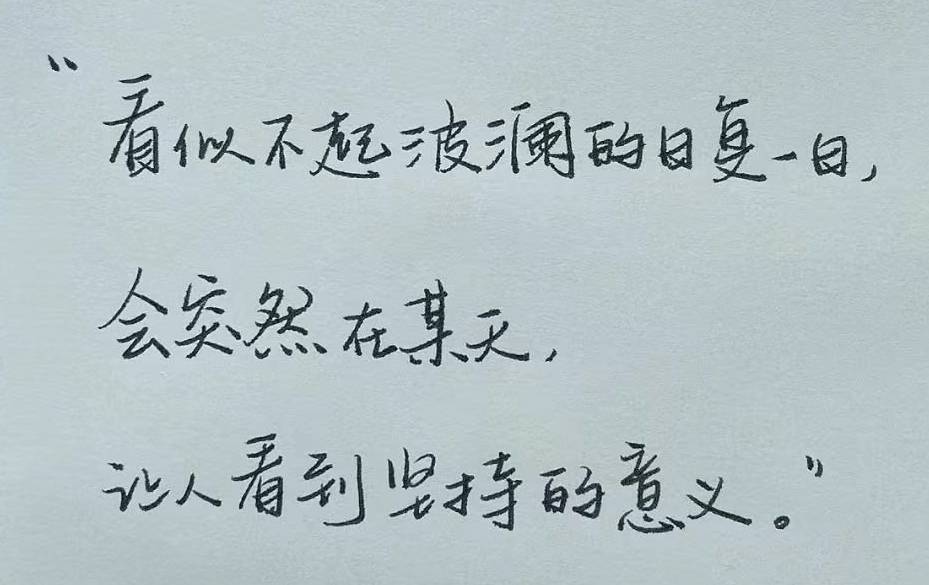 “看似不起波澜的日复一日,
会突然在某天,
让人看到坚持的意义。”